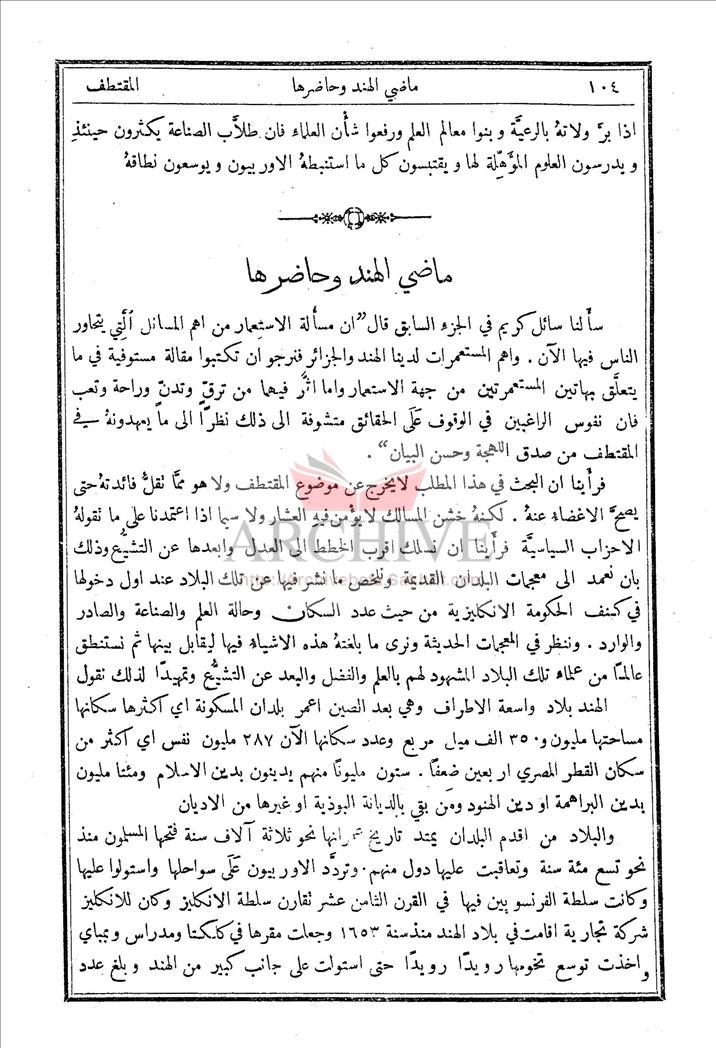 ١٠٤ ماضي الهند وحاضرها المقتطف
اذا برَّ ولاتهُ بالرعيَّة وبنوا معالم العلم ورفعوا شأن العلماء فان طلَّاب الصناعة يكثرون حينئذٍ
ويدرسون العلوم المؤَهِّلة لها ويقتبسون كل ما استنبطهُ الاوربيون ويوسعون نطاقهُ
ماضي الهند وحاضرها
سأَلنا سائل كريم في الجزء السابق قال "ان مسأَلة الاستعمار من اهم المسائل الَّتي يتحاور
الناس فيها الآن . واهم المستعمرات لدينا الهند والجزائر فنرجو ان تكتبوا مقالة مستوفية في ما
يتعلَّق بهاتين المستعمرتين من جهة الاستعمار واما اثَّر فيهما من ترقٍّ وتدنٍّ وراحة وتعب
فان نفوس الراغبين في الوقوف عَلَى الحقائق متشوفة الى ذلك نظرًا الى ما يعهدونهُ في
المقتطف من صدق اللهجة وحسن البيان" .
فرأَينا ان البحث في هذا المطلب لا يخرج عن موضوع المقتطف ولا هو ممَّا تقلُّ فائدتهُ حتى
يصحَّ الاغضاء عنهُ . لكنهُ خشن المسالك لا يؤمن فيهِ العثار ولا سيما اذا اعتمدنا على ما تقولهُ
الاحزاب السياسيَّة فرأَينا ان نسلك اقرب الخطط الى العدل وابعدها عن التشيُّع وذلك
بان نعمد الى معجمات البلدان القديمة ونلخص ما نشر فيها عن تلك البلاد عند اول دخولها
في كنف الحكومة الانكليزية من حيث عدد السكان وحالة العلم والصناعة والصادر
والوارد . وننظر في المعجمات الحديثة ونرى ما بلغتهُ هذه الاشياء فيها ليقابل بينها ثم نستنطق
عالمًا من علماء تلك البلاد المشهود لهم بالعلم والفضل والبعد عن التشيُّع وتمهيدًا لذلك نقول
الهند بلاد واسعة الاطراف وهي بعد الصين اعمر بلدان المسكونة اي اكثرها سكانها
مساحتها مليون و٣٥٠ الف ميل مربع وعدد سكانها الآن ٢٨٧ مليون نفس اي اكثر من
سكان القطر المصري اربعين ضعفًا . ستون مليونًا منهم يدينون بدين الاسلام ومئتا مليون
بدين البراهمة او دين الهنود ومَن بقي بالديانة البوذية او غيرها من الاديان
والبلاد من اقدم البلدان يمتد تاريخ عمرانها نحو ثلاثة آلاف سنة فتحها المسلمون منذ
نحو تسع مئة سنة وتعاقبت عليها دول منهم . وتردَّد الاوربيون عَلَى سواحلها واستولوا عليها
وكانت سلطة الفرنسويين فيها في القرن الثامن عشر تقارن سلطة الانكليز وكان للانكليز
شركة تجارية اقامت في بلاد الهند منذ سنة ١٦٥٣ وجعلت مقرها في كلكتا ومدراس وبمباي
واخذت توسع تخومها رويدًا رويدًا حتى استولت على جانب كبير من الهند وبلغ عدد
ARCHIVE